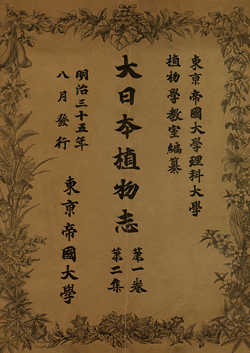 東京帝國大學理科大學
植物學教室編纂
大日本植物志
第一卷
第二集
明治三十五年
八月發行
東京帝國大學